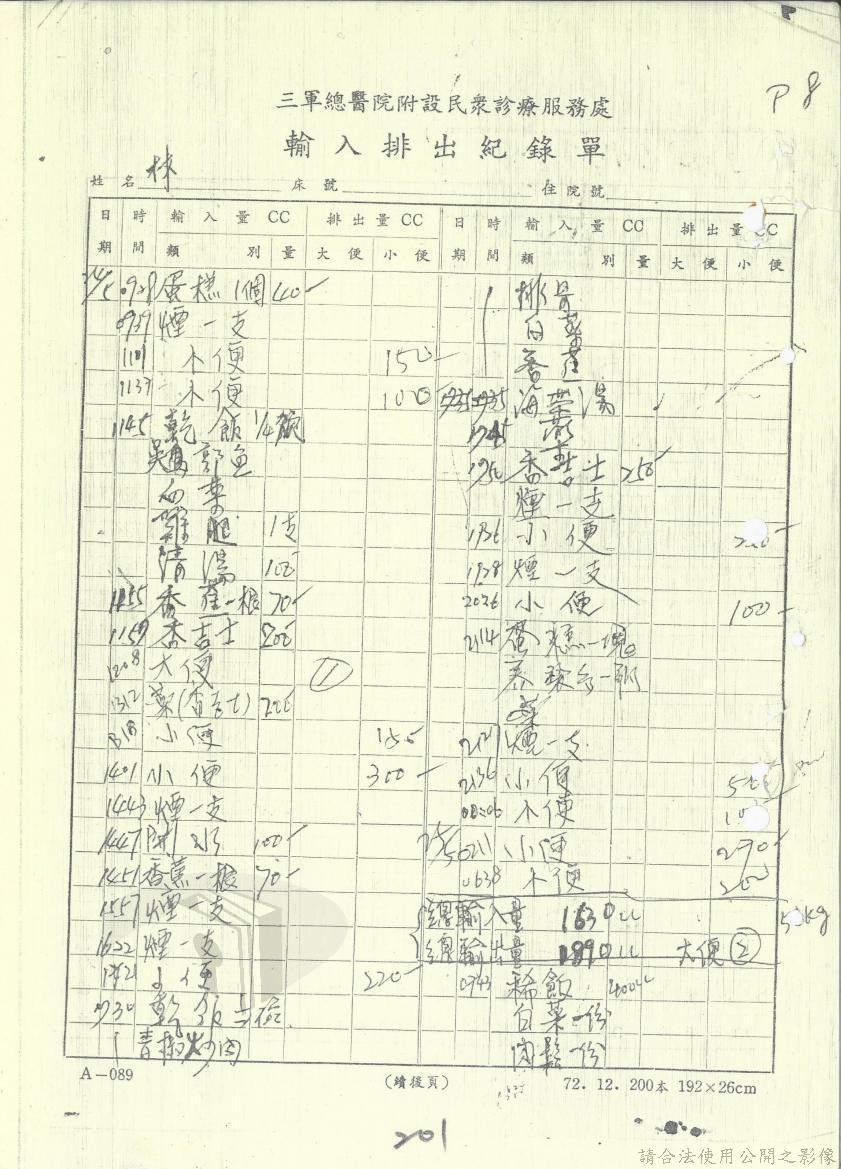 P 8
三軍總醫院附設民衆診療服務處
輸入排出紀錄單
姓名 林 床號 住院號
日期 時間 輸入量CC 類別 量 排出量CC 大便 小便 日期 時間 輸入量CC 類別 量 排出量CC 大便 小便
蛋糕1個 40
0939 煙一支
1101 小便 150
1137 小便 100
1145 乾飯 1/4碗
吳郭魚
白菜
雞腿 1支
清湯 100
1155 香蕉一根 70
1159 香吉士 200
1208 大便 ①
1312 藥(香吉士) 200
1318 小便 150
1401 小便 300
1443 煙一支
1447 開水 100
1451 香蕉一根 70
1557 煙一支
1622 煙一支
1721 小便 220
1730 乾飯
青椒炒肉
排骨
白菜
香蕉
1735 海帶湯
1745
1750 香吉士 250
煙一支
1936 小便
1938 煙一支
2026 小便 100
2114 蛋糕一塊
藥
2121 煙一支
2136 小便
00:06 小便
25/5 0211 小便 290
0638 小便 200
總輸入量 1630cc
總輸出量 1890cc 大便②
kg
0743 稀飯 400cc
白菜一份
肉鬆一份
A－089 (續後頁) 72. 12. 200本 192×26cm
201
請合法使用公開之影像